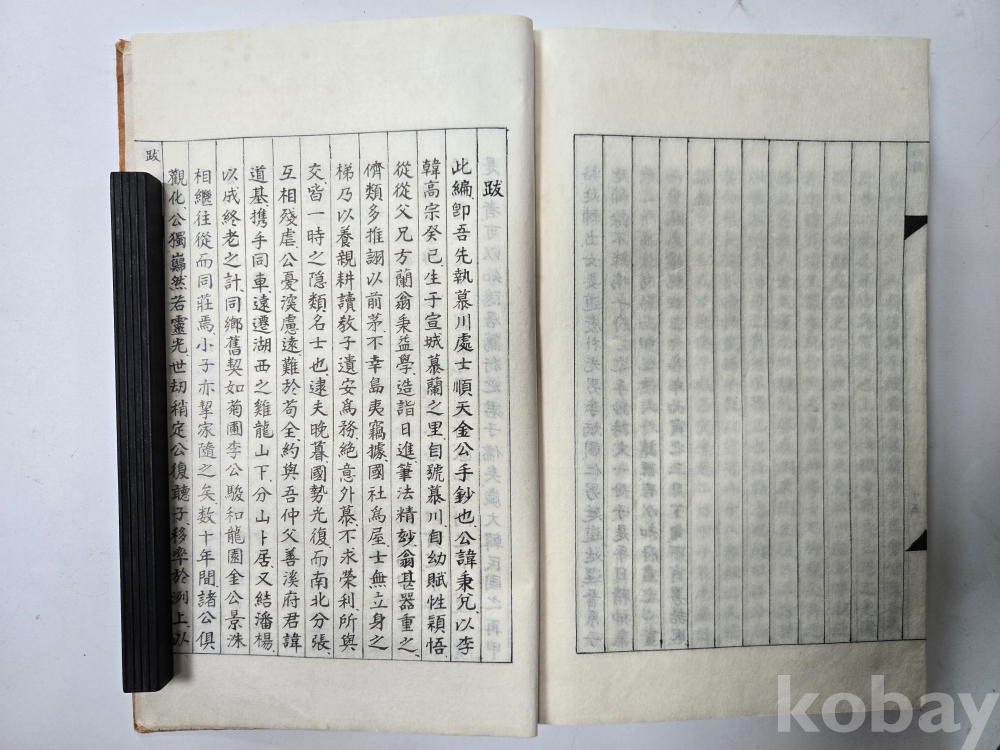 跋
此編卽吾先執慕川處士順天金公手鈔也公諱秉兊以李
韓高宗癸巳生于宣城慕蘭之里自號慕川自幼賦性穎悟
從從父兄方蘭翁秉益學造詣日進筆法精妙翁甚器重之
儕類多推詡以前茅不幸島夷竊據國社爲屋士無立身之
梯乃以養親耕讀敎子遺安爲務絶意外慕不求榮利所與
交皆一時之隐類名士也逮夫晩暮國勢光復而南北分張
互相殘虐公憂深慮遠難於苟全約與吾仲父善溪府君諱
道基携手同車遠遷湖西之雞龍山下分山卜居又結潘楊
以成終老之計同鄉舊契如菊圃李公駿和龍圜金公景洙
相繼往從而同莊焉小子亦挈家隨之矣数十年間諸公俱
觀化公獨巋然若靈光世刼稍定公復聽子移率於洌上以
跋
kobay